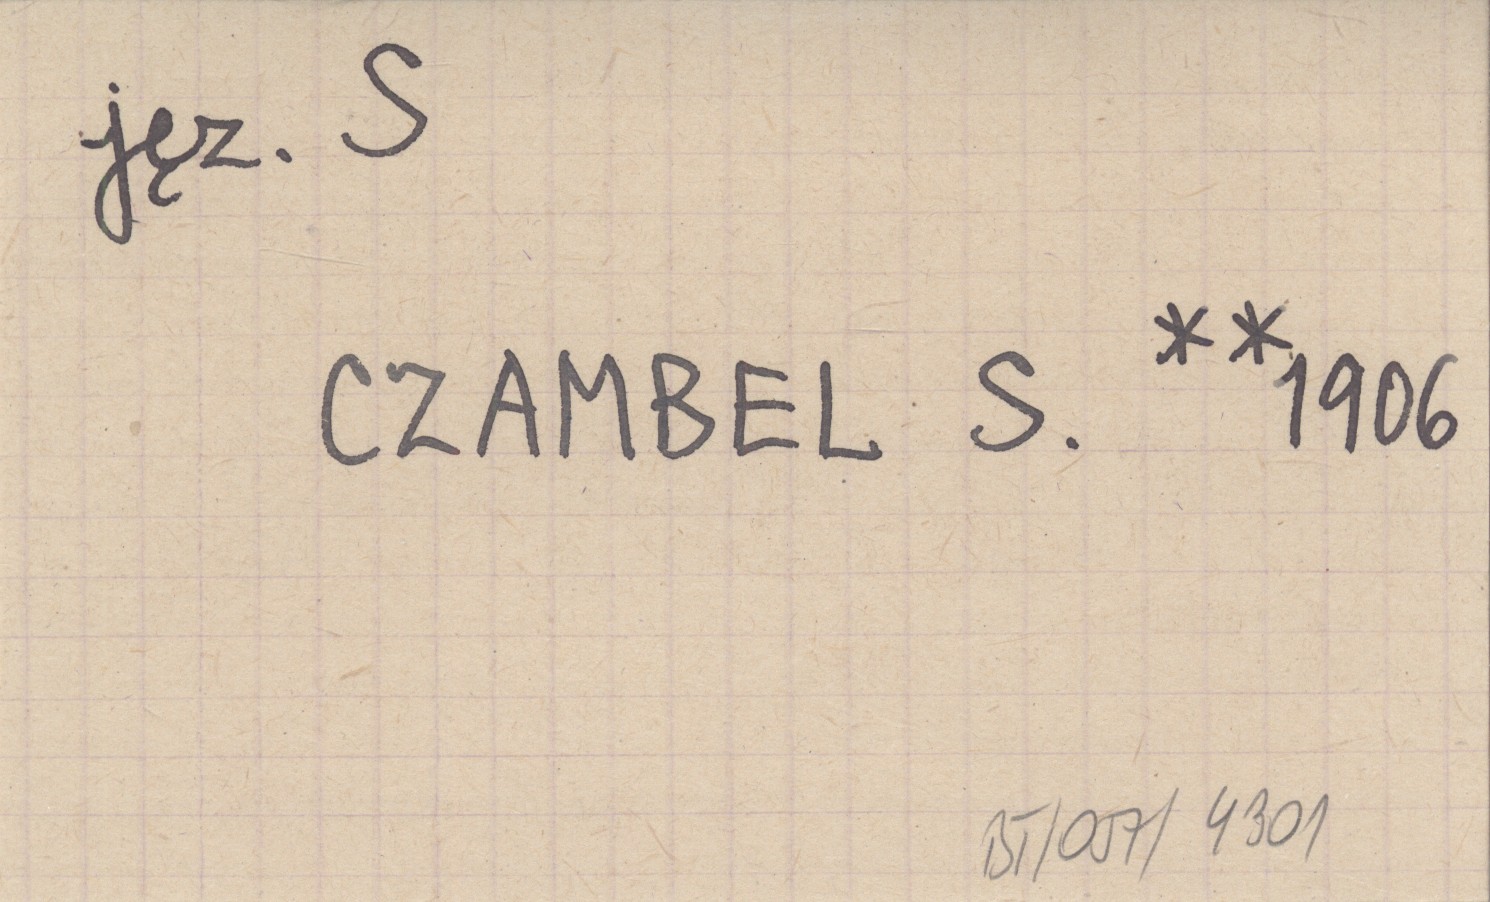 jęz. S
CZAMBEL S. **1906
BT/057/ 4301